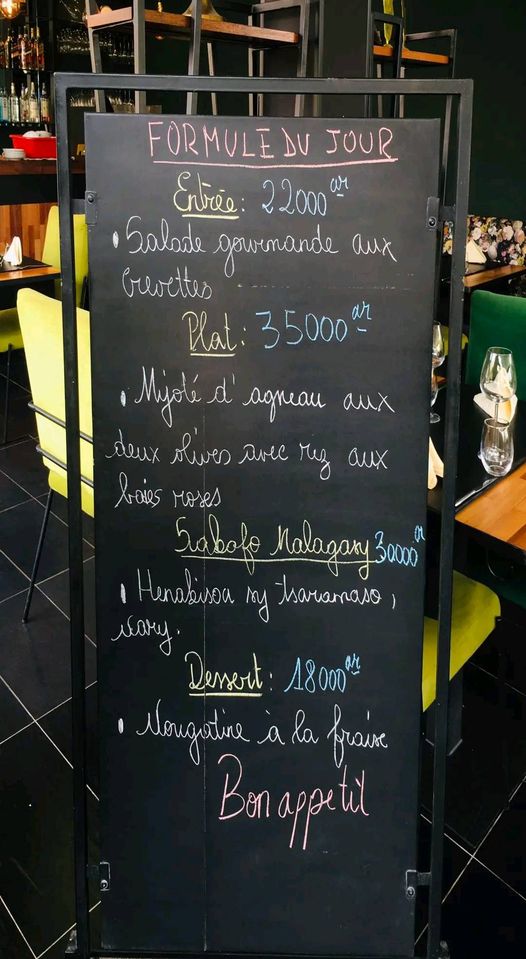 FORMULE DU JOUR
Entrée: 22000 ar
• Salade gourmande aux
crevettes
Plat: 35000 ar
• Mijoté d'agneau aux
deux olives avec riz aux
baies roses
Sakafo Malagasy 30000 ar
• Henakisoa sy tsaramaso,
vary.
Dessert: 18000 ar
• Nougatine à la fraise
Bon appetit